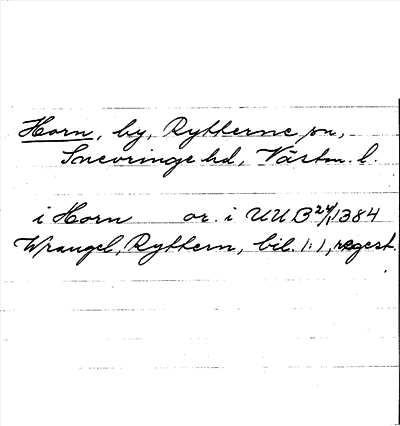 Horn, by, Rytterne sn,
Snevringe hd, Västm. l.
i Horn or. i UUB 24/1 1384
Wrangel, Ryttern, bil. 1:1, regest.